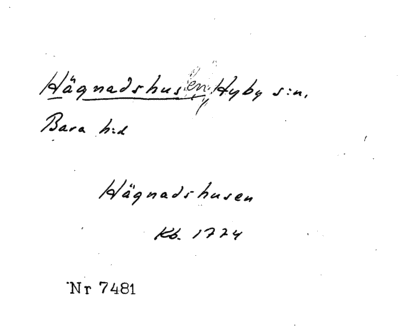 Hägnadshusen, Hyby s:n.
Bara h:d
Hägnadshusen
Kb. 1774
Nr 7481